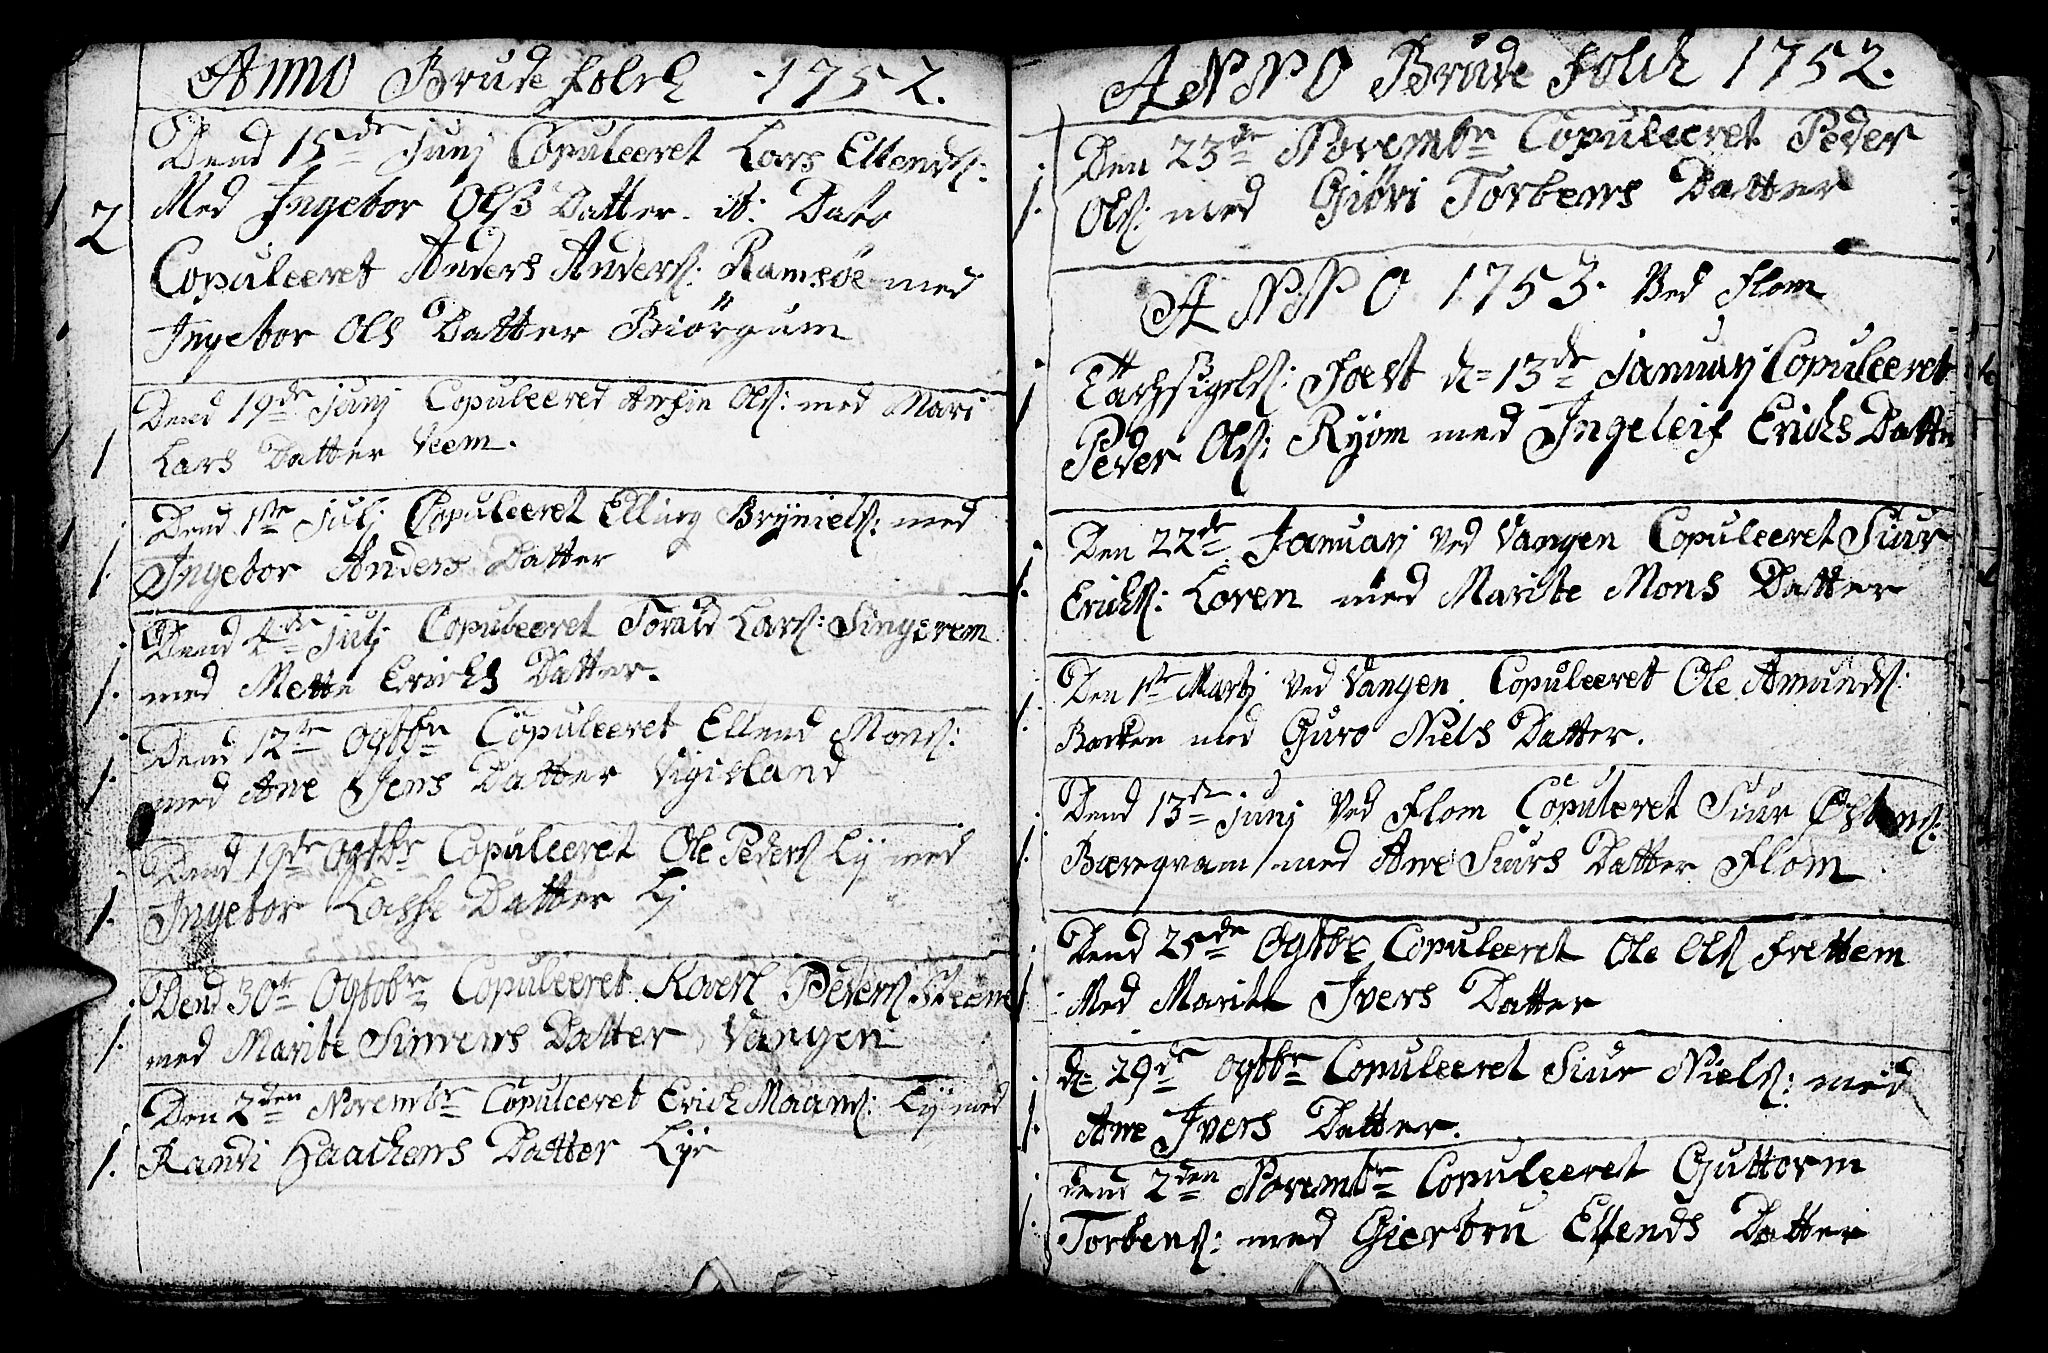 Anno Brude folch 1752.
Dend 15de Junj Copuleeret Lars Ellends:
2 Med Ingebor Olss Datter. it: Dato
Copuleeret Anders Anders: Ramsøe med
Ingebor Ols Datter Biörgum
Dend 19de Junj Copuleered Anfin Ols: med Mari
1 Lars Datter Veem.
Dend 1ste Julj Copuleeret Elling Brÿniels: med
1. Ingebor Anders Datter
Dend 4de Julj Copuleeret Torald Lars: Singerem
1. med Mette Erichs Datter.
Dend 12te Ogtbr Copuleeret Ellend Mons:
1. med Ane Jens Datter Vigisland
Dend 19de Ogtbr Copuleeret Ole Peders Lÿ med
1. Ingebor Lasse Datter Lÿ
Dend 30te Ogtobr Copuleeret Peders Steene
1. med Marite Simens Datter Vangen
Den 2den Novembr Copuleeret Erich Maans: Lÿ med
1. Randi Haachens Datter Lÿe
ANNO Brude folch 1752.
Den 23de Novembr Copuleeret Peder
1. Ols: med Giöri Torbens Datter
ANNO 1753. Ved Flom
1 Tachsigels: Fæst d= 13de Januarj Copuleeret
Peder Ols: Ryom med Ingeleif Erichs Datter
Den 22de Januarj Ved Vangen Copuleeret Siur
1. Erichs: Loven med Marite Mons Datter
Den 1ste Martj Ved Vangen Copuleeret Ole Amunds:
1. Backen med Guro Niels Datter.
Dend 13de Junj Ved Flom Copuleret Siur
1. Bæreqvam med Ane Siurs Datter Flom
Dend 25de Ogtbr Copuleeret Ole Ols Frettem
1 Med Marite Ivers Datter
d= 29de Ogtbr Copuleeret Siur Niels: med
1. Ane Ivers Datter.
dend 2den Novembr Copuleeret Guttorm
1. Torbens: med Gierbru Ellends Datter